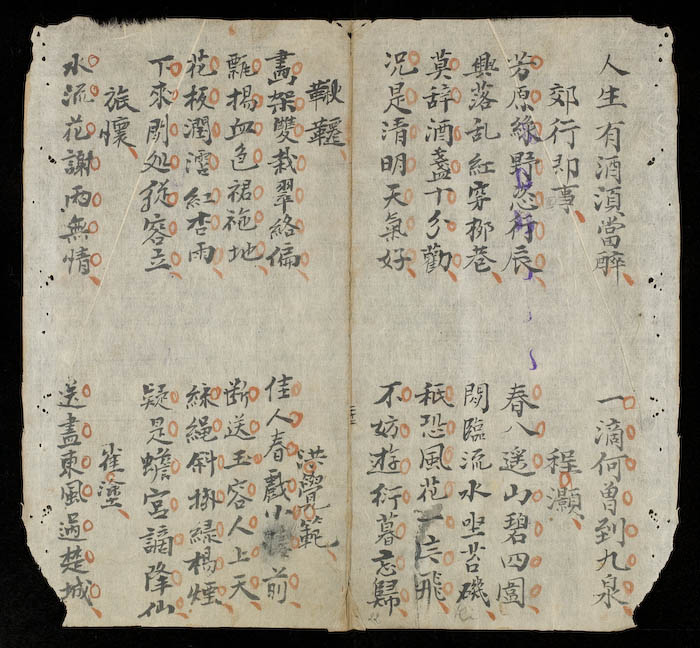 人生有酒須當醉 一滴何曾到九泉
郊行即事 程灝
芳原綠野恣行辰 春入遙山碧四圍
興落乱紅穿柳巷 閒臨流水坐苔磯
莫辞酒盞十分勸 秖恐風花一片飛
况是清明天氣好 不妨游衍暮忘歸
鞦韆 洪覺範
畵架雙栽翠絡偏 佳人春戲小 前
飄揚血色裙拖地 断送玉容人上天
花板潤霑紅杏雨 綵繩斜掛緑楊煙
下來閒处從容立 疑是蟾宮謫降仙
旅懷 崔塗
水流花謝両無情 送盡東風過楚城